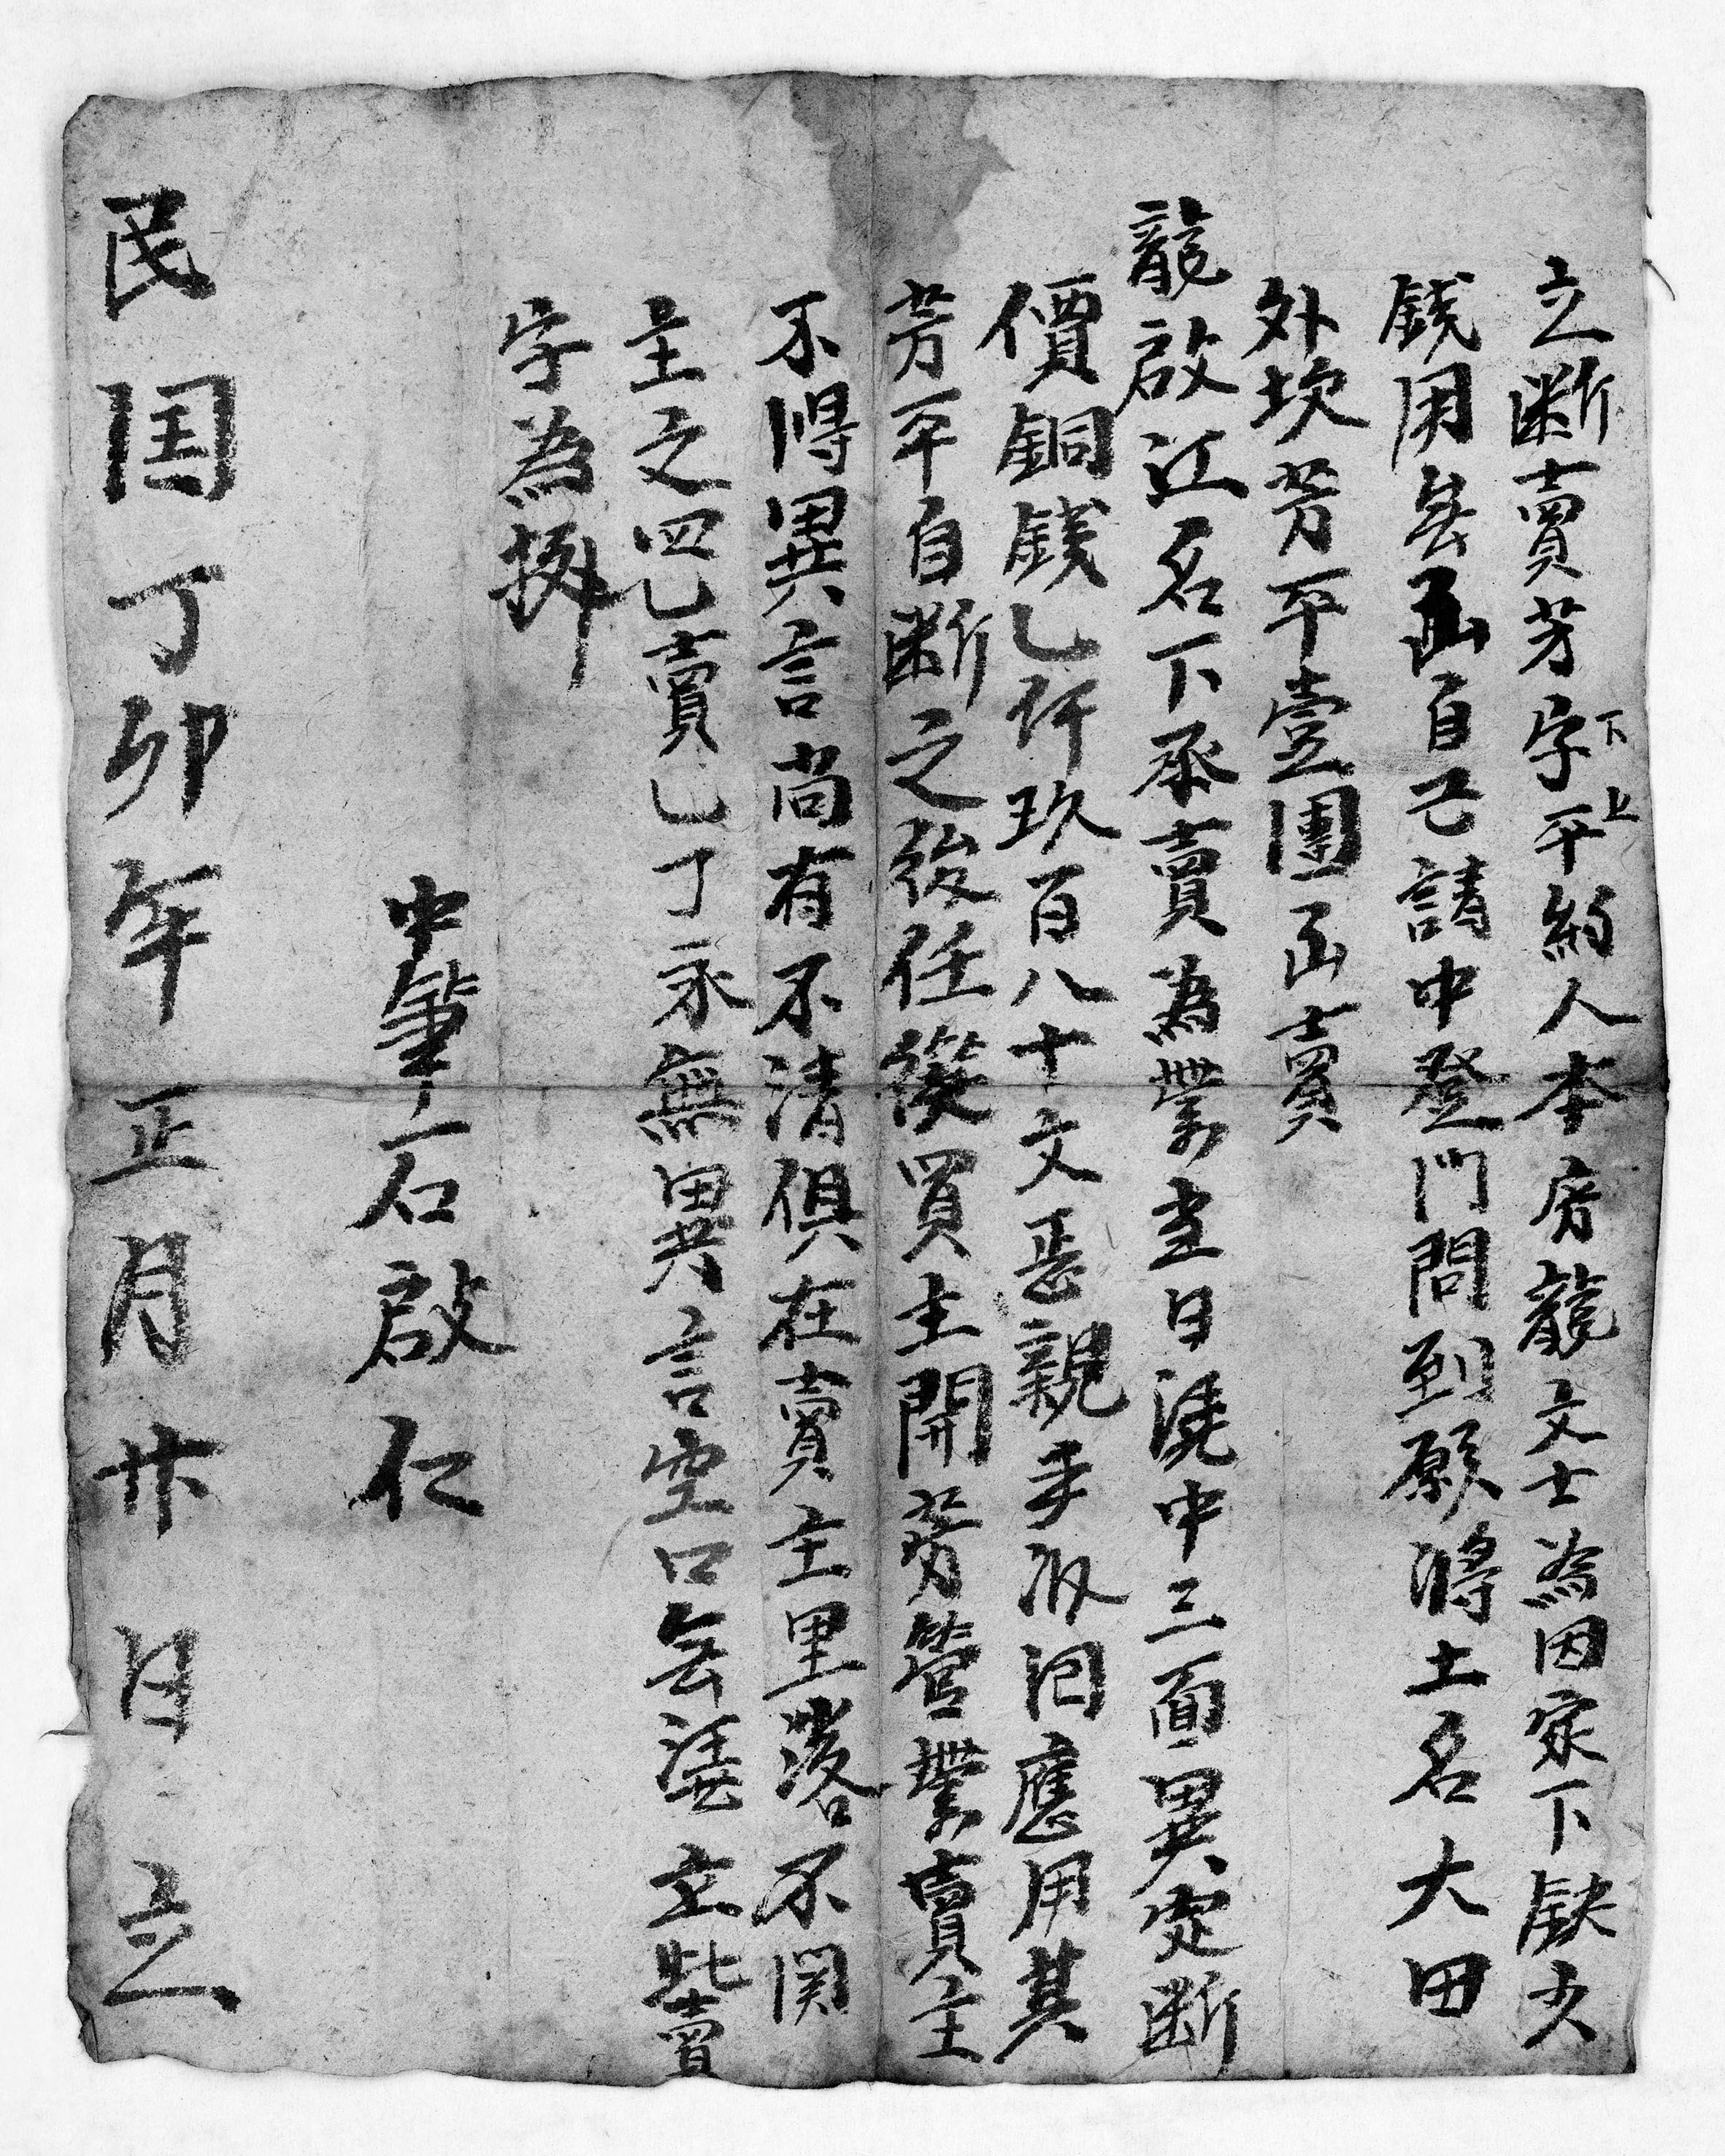 立断賣芳字下平上約人本房龍文士為因家下缺少
銭用無函自己請中登門問到願將土名大田
外坎芳平壹團函賣
龍啟江名下承賣為業當日澆中三面異定断
價銅銭乙仟玖百八十文恁親手収囘應用其
芳平自断之後任從買主開芳管業賣主
不得異言尚有不清俱在賣主里落不関
主之四乚賣乚了永無異言空口無凴立此賣
字為挶
中筆石啟仁
民国丁卯年正月廿日立